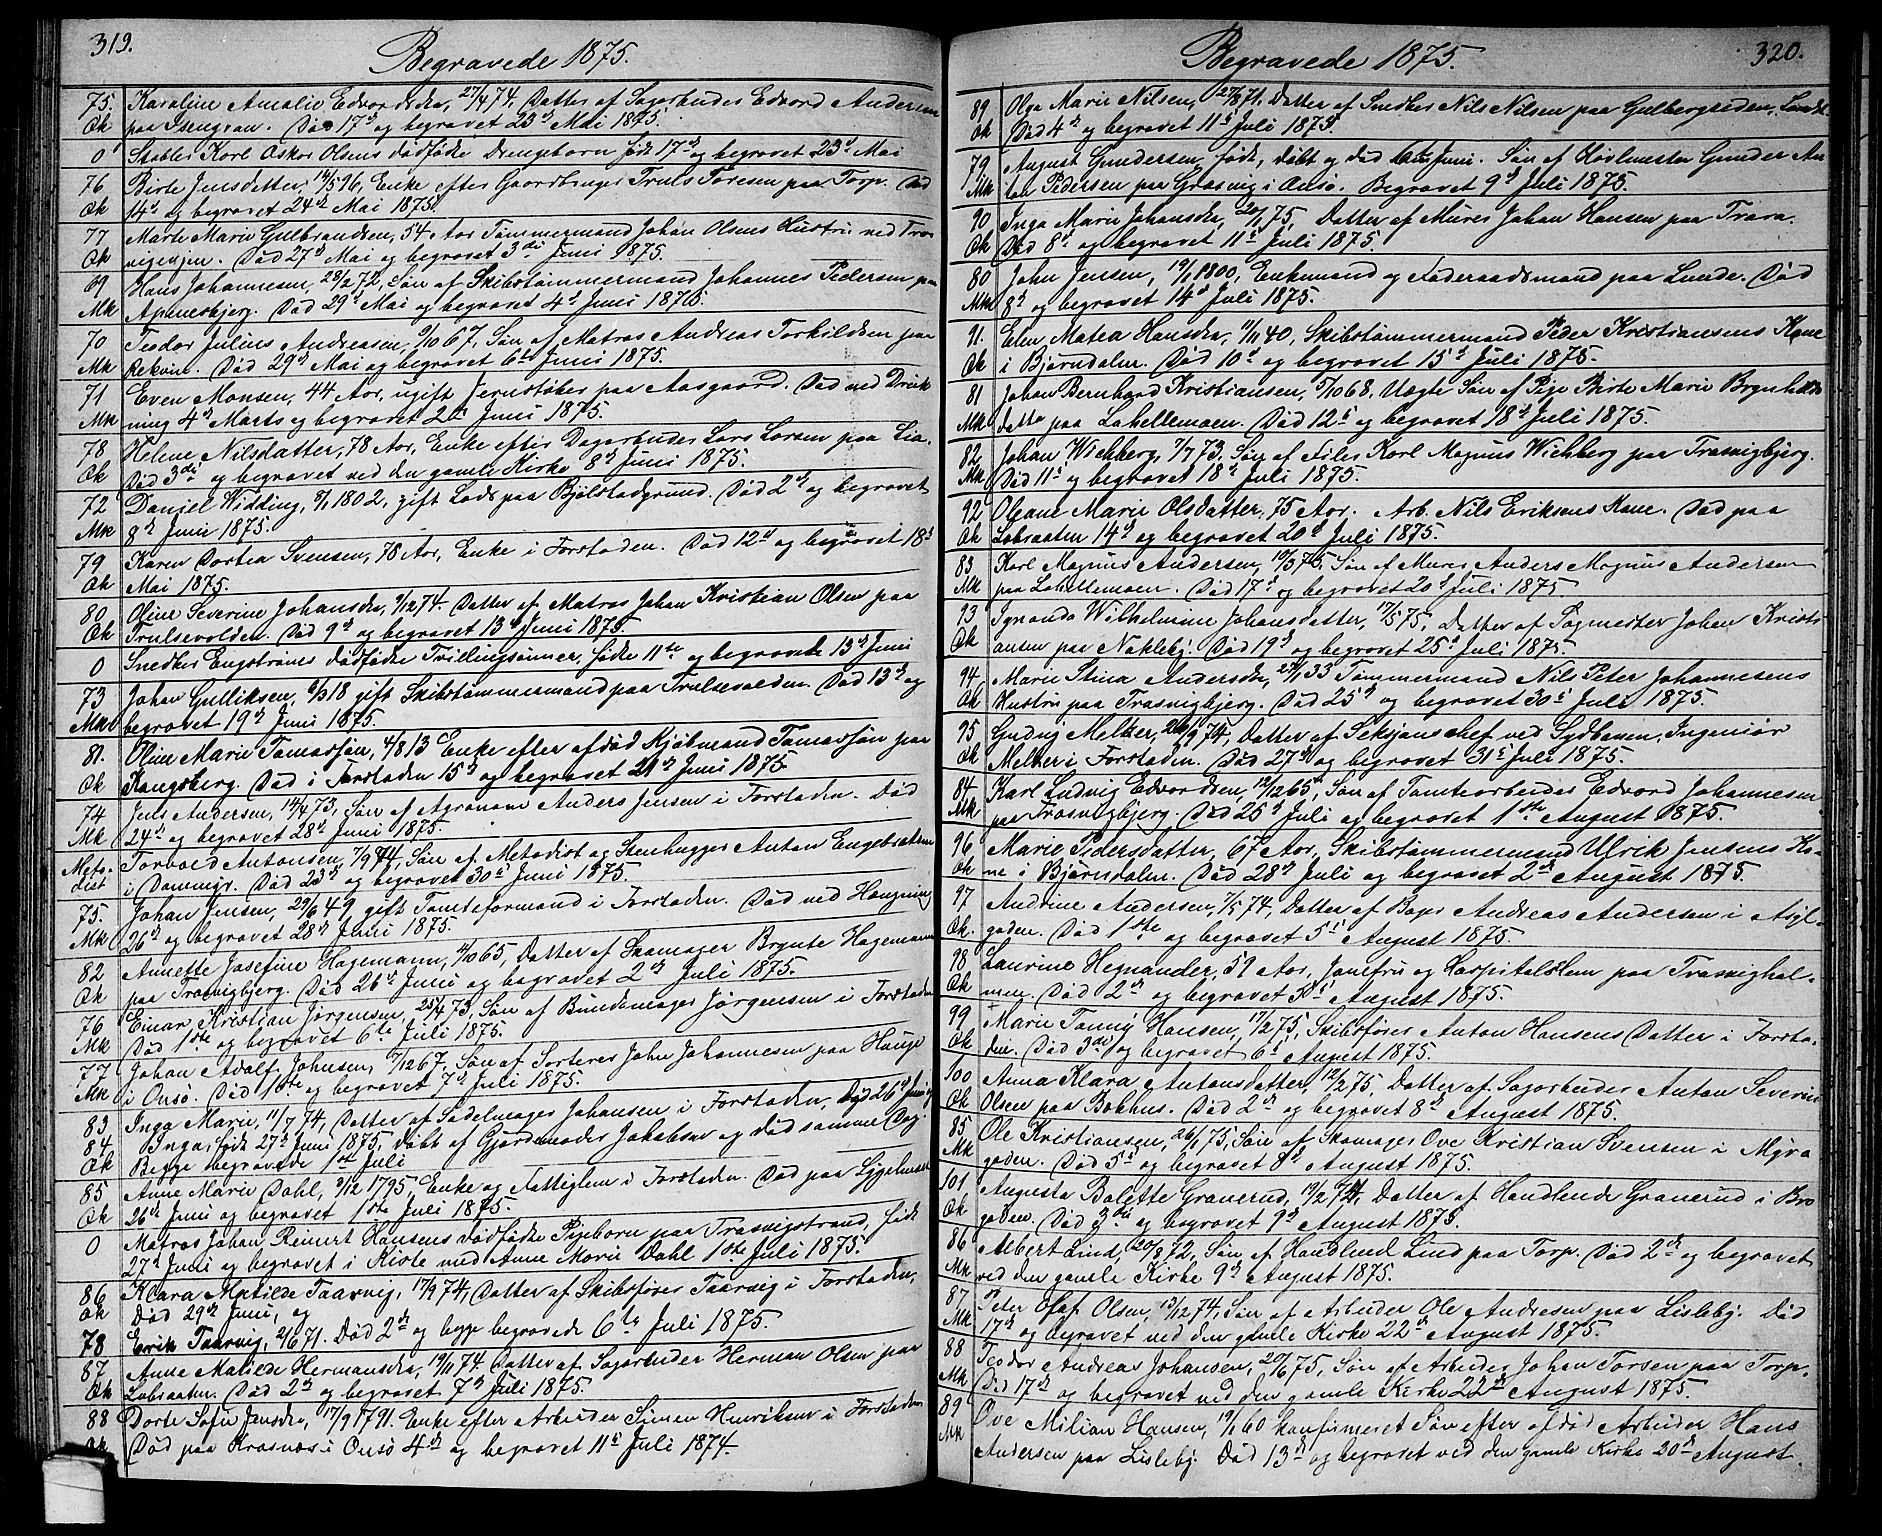 319.
Begravede 1875.
75. Karoline Amalie Edvardsdr, 27/4 74, Datter af Sagarbeider Edvard Andersen
Qk paa Isengran. Død 17d og begravet 23d Mai 1875.
0 Stabler Karl Oskar Olsens dødfødte Drengebarn født 17d og begravet 23d Mai
76 Birte Jensdatter, 14/5 96, Enke efter Gaardbruger Truls Toresen paa Torp. Død
Qk 14d og begravet 24d Mai 1875.
77 Marte Marie Gulbrandsen, 54 Aar Tømmermand Johan Olsens Hustru ved Tras-
Qk vigexjen. Død 27d Mai og begravet 3die Juni 1875.
69 Hans Johannesen, 28/2 72, Søn af Skibstømmermand Johannes Pedersen paa
Mk Apenesbjerg. Død 29d Mai og begravet 4d Juni 1875.
70 Teodor Julius Andreasen, 9/10 67, Søn af Matros Andreas Torkildsen paa
Mk Rekvin. Død 29d Mai og begravet 6te Juni 1875.
71 Even Monsen, 44 Aar, ugift Jernstøber paa Aasgaard. Død ved Druk
Mk ning 4d Marts og begravet 2d Juni 1875.
78 Helene Nilsdatter, 78 Aar, Enke efter Dagarbeider Lars Larsen paa Lia.
Qk Død 3die og begravet ved den gamle Kirke 8d Juni 1875.
72 Daniel Widding, 9/1 1802, gift Lods paa Bjølstadgrund. Død 2d og begravet
Mk 8d Juni 1875.
79 Karen Dortea Svensen, 78 Aar, Enke i Forstaden. Død 12d og begravet 18d
Qk Mai 1875.
80 Oline Severine Johansdr, 9/12 74. Datter af Matros Johan Kristian Olsen paa
Qk Trulsevolden. Død 9d og begravet 13d Juni 1875.
0 Snedker Engstrøms dødfødte Tvillingsønner, fødte 11te og begravede 13d Juni
73 Johan Gulliksen, 6/3 18 gift Skibstømmermand paa Trulsevolden. Død 13d og
Mk begravet 19d Juni 1875.
81. Oline Marie Tomassøn, 4/8 13 Enke efter afdød Kjøbmand Tomassøn paa
Qk Kongsberg. Død i Forstaden 15d og begravet 21d Juni 1875
74 Jens Andersen, 14/4 73, Søn af Agronom Anders Jensen i Forstaden. Død
Mk 24d og begravet 28d Juni 1875.
Meto- Torvald Antonsen, 7/9 74, Søn af Metodist og Stenhugger Anton Engebretsen
dist i Dammyr. Død 23d og begravet 30d Juni 1875.
75. Johan Jensen, 29/6 49 gift Tomteformand i Forstaden. Død ved Hængning
Mk 26d og begravet 28d Juni 1875.
82 Annette Josefine Hagemann, 4/10 65, Datter af Skomager Brynte Hagemann
Qk paa Trasvigbjerg. Død 26d Juni og begravet 2d Juli 1875.
76 Einar Kristian Jørgensen, 25/4 73, Søn af Bundtmager Jørgensen i Forstaden
Mk Død 1ste og begravet 6te Juli 1875.
77 Johan Adolf Johnsen, 7/12 67, Søn af Sorterer John Johannesen paa Hauge
Mk i Onsø. Død 1ste og begravet 7d Juli 1875.
83 Inga Marie, 11/7 74, Datter af Sadelmager Johansen i Forstaden, Død 26d Juni og
84 Inga, født 27d Juni 1875, døbt af Gjordmoder Jakobsen og død samme Dag
Qk Begge begravede 1ste Juli
85 Anne Marie Dahl, 9/12 1795, Enke og Fattiglem i Forstaden. Død paa Sygehuset
Qk 26d Juni og begravet 1ste Juli 1875.
0 Matros Johan Reinert Hansens dødfødte Pigebarn paa Trasvigstrand, født
27d Juni og begravet i Kiste med Anne Marie Dahl 1ste Juli 1875.
86 Klara Matilde Taarvig, 17/9 74, Datter af Skibsfører Taarvig i Forstaden,
Qk Død 29d Juni, og
78 Erik Taarvig, 2/6 71. Død 2d og begge begravede 6te Juli 1875.
87 Anne Matilde Hermansdr, 19/11 74. Datter af Sagarbeider Herman Olsen paa
Qk Labraaten. Død 2d og begravet 7d Juli 1875.
88 Dorte Sofie Jensdr, 17/9 1791. Enke efter Arbeider Simen Henriksen i Forstaden
Qk Død paa Krosnæs i Onsø 4d og begravet 11d Juli 1874.
320.
Begravede 1875.
89 Olga Marie Nilsen, 27/6 71. Datter af Snedker Nils Nilsen paa Gulbergsiden, Lunde
Qk Død 4d og begravet 11d Juli 1875.
79 August Gundersen, født, døbt og død 6te Juni. Søn af Høvlmester Gunder An-
Mk ton Pedersen paa Græsvig i Onsø. Begravet 9d Juli 1875.
90 Inga Marie Johansdr, 20/1 75, Datter af Murer Johan Hansen paa Trara.
Qk Død 8d og begravet 11d Juli 1875.
80 John Jensen, 19/1 1800, Enkemand og Føderaadsmand paa Lunde. Død
Mk 8d og begravet 14d Juli 1875.
91. Elen Matea Hansdr, 11/11 40, Skibstømmermand Peder Kristiansens Kone
Qk i Bjørndalen. Død 10d og begravet 15d Juli 1875.
81 Johan Bernhard Kristiansen, 5/10 68. Uægte Søn af Pige Birte Marie Brynhilds
Mk datter paa Lahellemoen. Død 12d og begravet 18d Juli 1875.
82 Johan Wichberg, 7/7 73, Søn af Filer Karl Magnus Wichberg paa Trasvigbjerg.
Mk Død 11d og begravet 18d Juli 1875.
92 Oleane Marie Olsdatter, 75 Aar. Arb. Nils Eriksens Kone. Død paa
Qk Labraaten 14d og begravet 20d Juli 1875.
83 Karl Magnus Andersen, 19/3 75, Søn af Murer Anders Magnus Andersen
Mk paa Lahellemoen. Død 17d og begravet 20d Juli 1875.
93 Iguanda Wilhelmine Johansdatter, 17/5 75, Datter af Sagmester Johan Kristi-
Qk ansen paa Nakleby. Død 19d og begravet 25d Juli 1875.
94. Marie Stina Andersdr, 27/1 33 Tømmermand Nils Peter Johannesens
Qk Hustru paa Trasvigbjerg. Død 25d og begravet 30d Juli 1875.
95 Gudvig Melker, 20/9 74, Datter af Seksjonschef ved Sydbanen, Ingeniør
Qk Melker i Forstaden. Død 27d og begravet 31d Juli 1875.
84 Karl Ludvig Edvardsen, 12/12 65, Søn af Tomtearbeider Edvard Johannesen
Mk paa Trasvigbjerg. Død 25d Juli og begravet 1ste August 1875.
96 Marie Pedersdatter, 67 Aar, Skibstømmermand Ulrik Jensens Ko-
Qk ne i Bjørndalen. Død 28d Juli og begravet 2d August 1875.
97 Andrine Andersen, 7/5 74, Datter af Bager Andreas Andersen i Asyl-
Qk. gaden. Død 1ste og begravet 5d August 1875.
98 Laurine Hegnander, 59 Aar, Jomfru og Hospitalslem paa Trasvighol-
Qk men. Død 2d og begravet 5d August 1875.
99 Marie Fanny Hansen, 17/2 75, Skibsfører Anton Hansens Datter i Forsta-
Qk den. Død 3die og begravet 6d August 1875.
100 Anna Klara Antonsdatter, 12/2 75, Datter af Sagarbeider Anton Severin
Qk Olsen paa Bokhus. Død 2d og begravet 8d August 1875.
85 Ole Kristiansen, 26/1 75, Søn af Skomager Ove Kristian Svensen i Myra
Mk gaden. Død 5d og begravet 8d August 1875.
101 Augusta Bolette Granerud, 19/2 74, Datter af Handlende Granerud i Bro
Qk gaden. Død 3die og begravet 9d August 1875.
86 Albert Lind, 20/8 72, Søn af Handlend Lind paa Torp. Død 2d og begravet
Mk ved den gamle Kirke 9d August 1875.
87 Peter Olaf Olsen, 13/12 74, Søn af Arbeider Ole Andresen paa Lisleby. Død
Mk 17d og begravet ved den gamle Kirke 22d August 1875.
88 Teodor Andreas Johansen, 20/6 75, Søn af Arbeider Johan Torsen paa Torp.
Mk Død 17d og begravet ved den gamle Kirke 22d August 1875.
89 Ove Milian Hansen, 19/1 60 konfirmeret Søn efter afdød Arbeider Hans
Mk Andersen paa Lisleby. Død 13d og begravet ved den gamle Kirke 20d August.